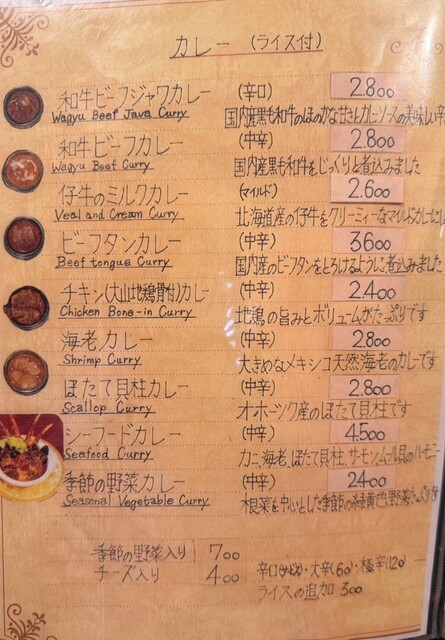 カレー (ライス付)
和牛ビーフジャワカレー (辛口) 2.800
Wagyu Beef Java Curry
国内産黒毛和牛のほのかな甘さとカレーソースの美味しい辛
和牛ビーフカレー (中辛) 2.800
Wagyu Beef Curry
国内産黒毛和牛をじっくりと煮込みました
仔牛のミルクカレー (マイルド) 2.600
Veal and Cream Curry
北海道産の仔牛をクリーミィーなマイルドカレーに
ビーフタンカレー (中辛) 3600
Beef tongue Curry
国内産のビーフタンをとろけるように煮込みました
チキン(大山地鶏骨付)カレー (中辛) 2.400
Chicken Bone-in Curry
地鶏の旨みとボリュームがたっぷりです
海老カレー (中辛) 2800
Shrimp Curry
大きめなメキシコ天然海老のカレーです
ほたて貝柱カレー (中辛) 2.800
Scallop Curry
オホーツク産のほたて貝柱です
シーフードカレー (中辛) 4.500
Seafood Curry
カニ、海老、ほたて貝柱、サーモン、ムール貝のハーモニー
季節の野菜カレー (中辛) 2400
Seasonal Vegetable Curry
根菜を中心とした季節の緑黄色野菜たっぷり
季節の野菜入り 700
チーズ入り 400
辛口・大辛(60)・極辛(120)
ライスの追加 300